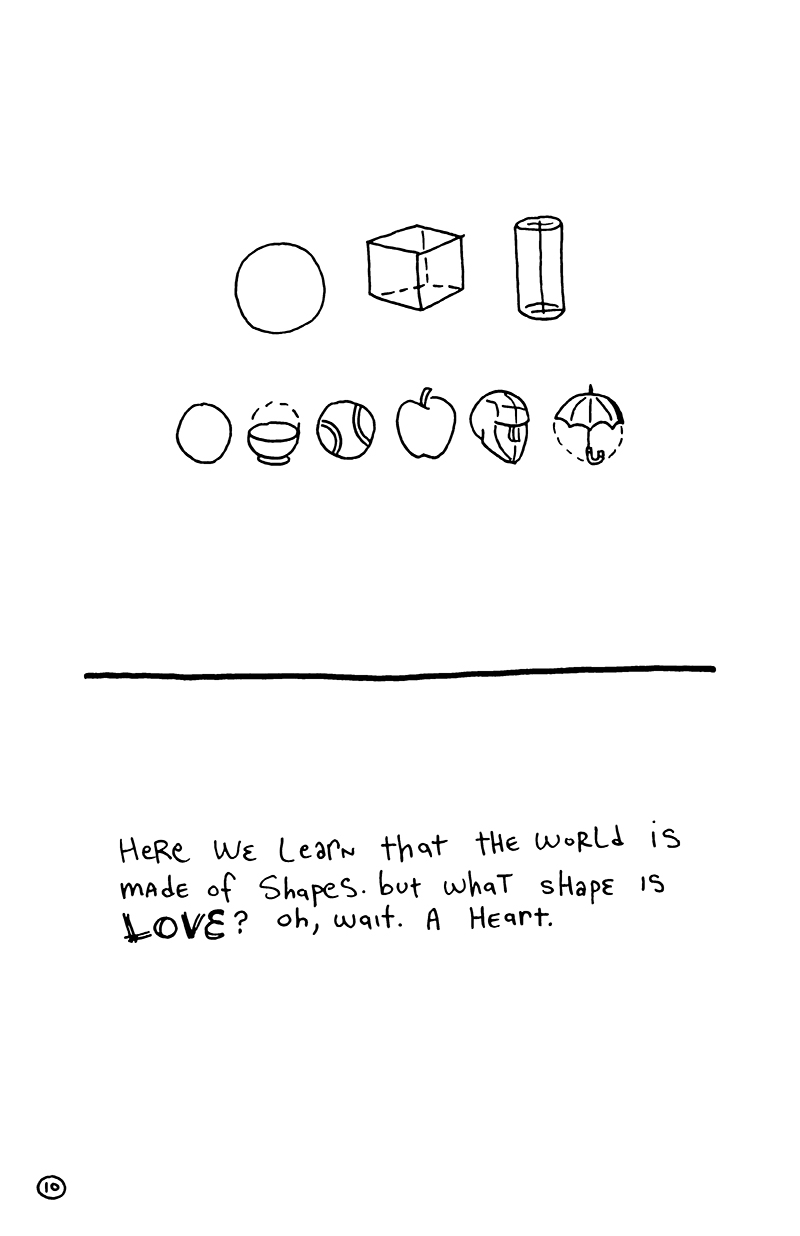 HeRe WE LearN that tHE WoRLd is
mAdE of ShapeS. but whaT sHapE IS
LOVE? oh, wait. A HEart.
10